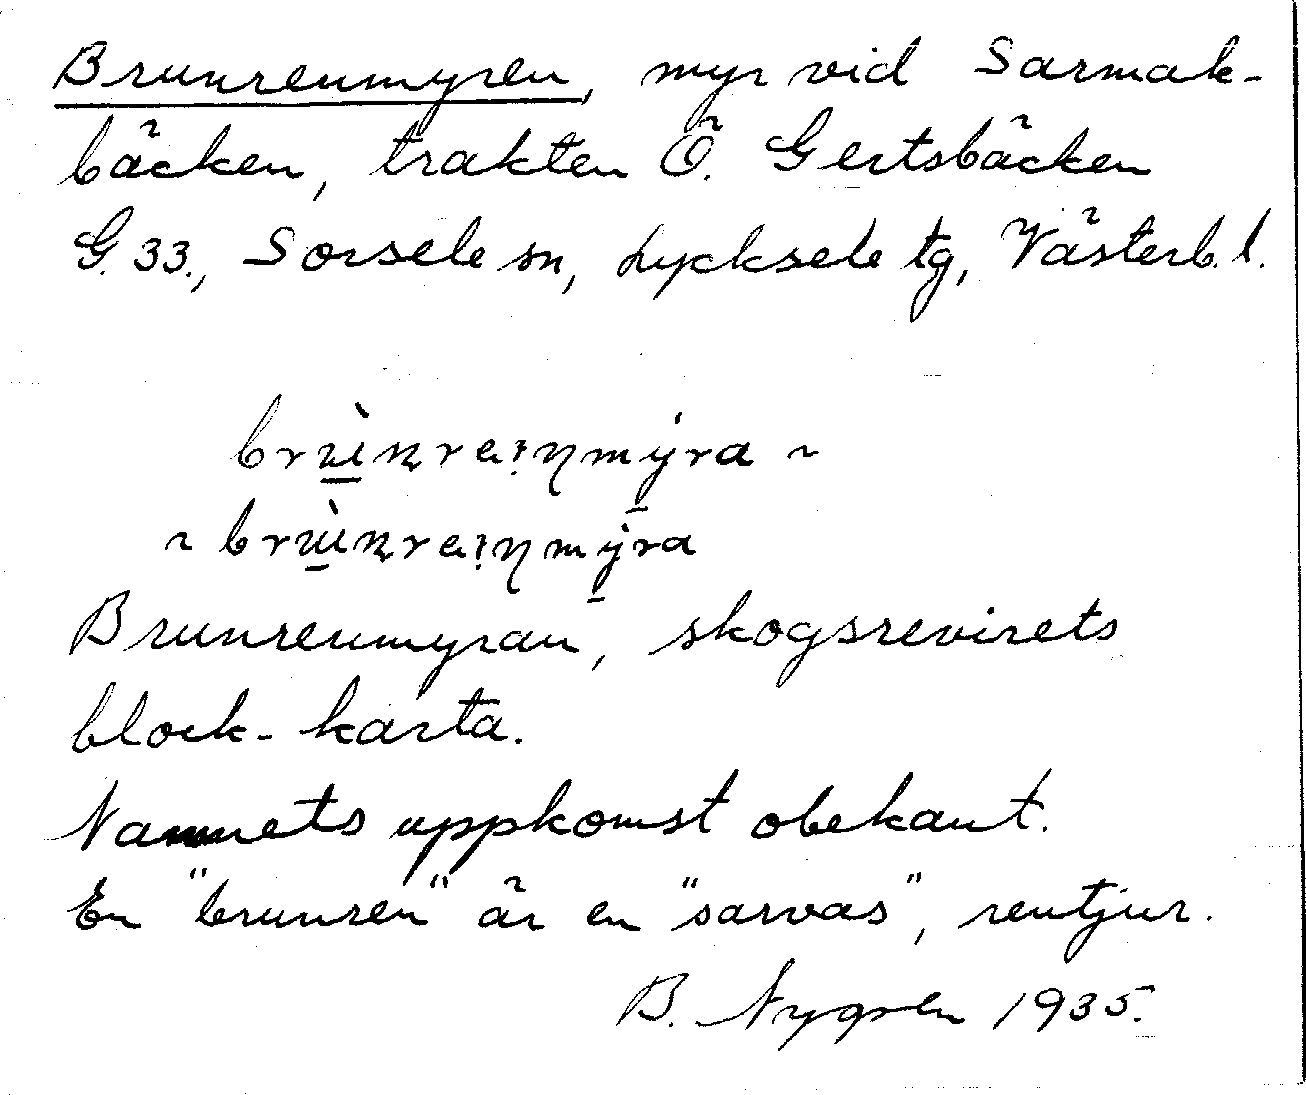 Brunrenmyren, myr vid Sarmak-
bäcken, trakten Ö. Gertsbäcken
G. 33., Sorsele sn, Lycksele tg, Västerb. l.
brùnreiŋmýra ~
~ brùnreiŋmýra
Brunrenmyran, skogsrevirets
block-karta.
Namnets uppkomst obekant.
En "brunren" är en "sarvas", rentjur.
B. Nygren 1935.